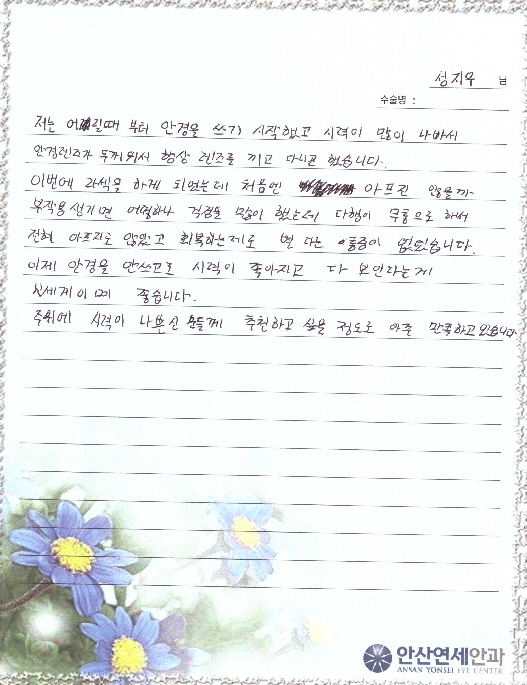 성지우 님
수술명 :
저는 어릴때 부터 안경을 쓰기 시작했고 시력이 많이 나빠서
안경렌즈가 두꺼워서 항상 렌즈를 끼고 다니곤 했습니다.
이번에 라식을 하게 되었는데 처음엔 아프진 않을까
부작용 생기면 어쩔하나 걱정을 많이 했는데 다행이 무통으로 해서
전혀 아프지도 않았고 회복하는데도 별 다른 통증이 없었습니다.
이제 안경을 안쓰고도 시력이 좋아지고 다 보인다는게
좋습니다.
주위에 시력이 나쁘신 분들께 추천하고 싶을 정도로 아주 만족하고 있습니다
안산연세안과
ANSAN YONSEI EYE CENTER